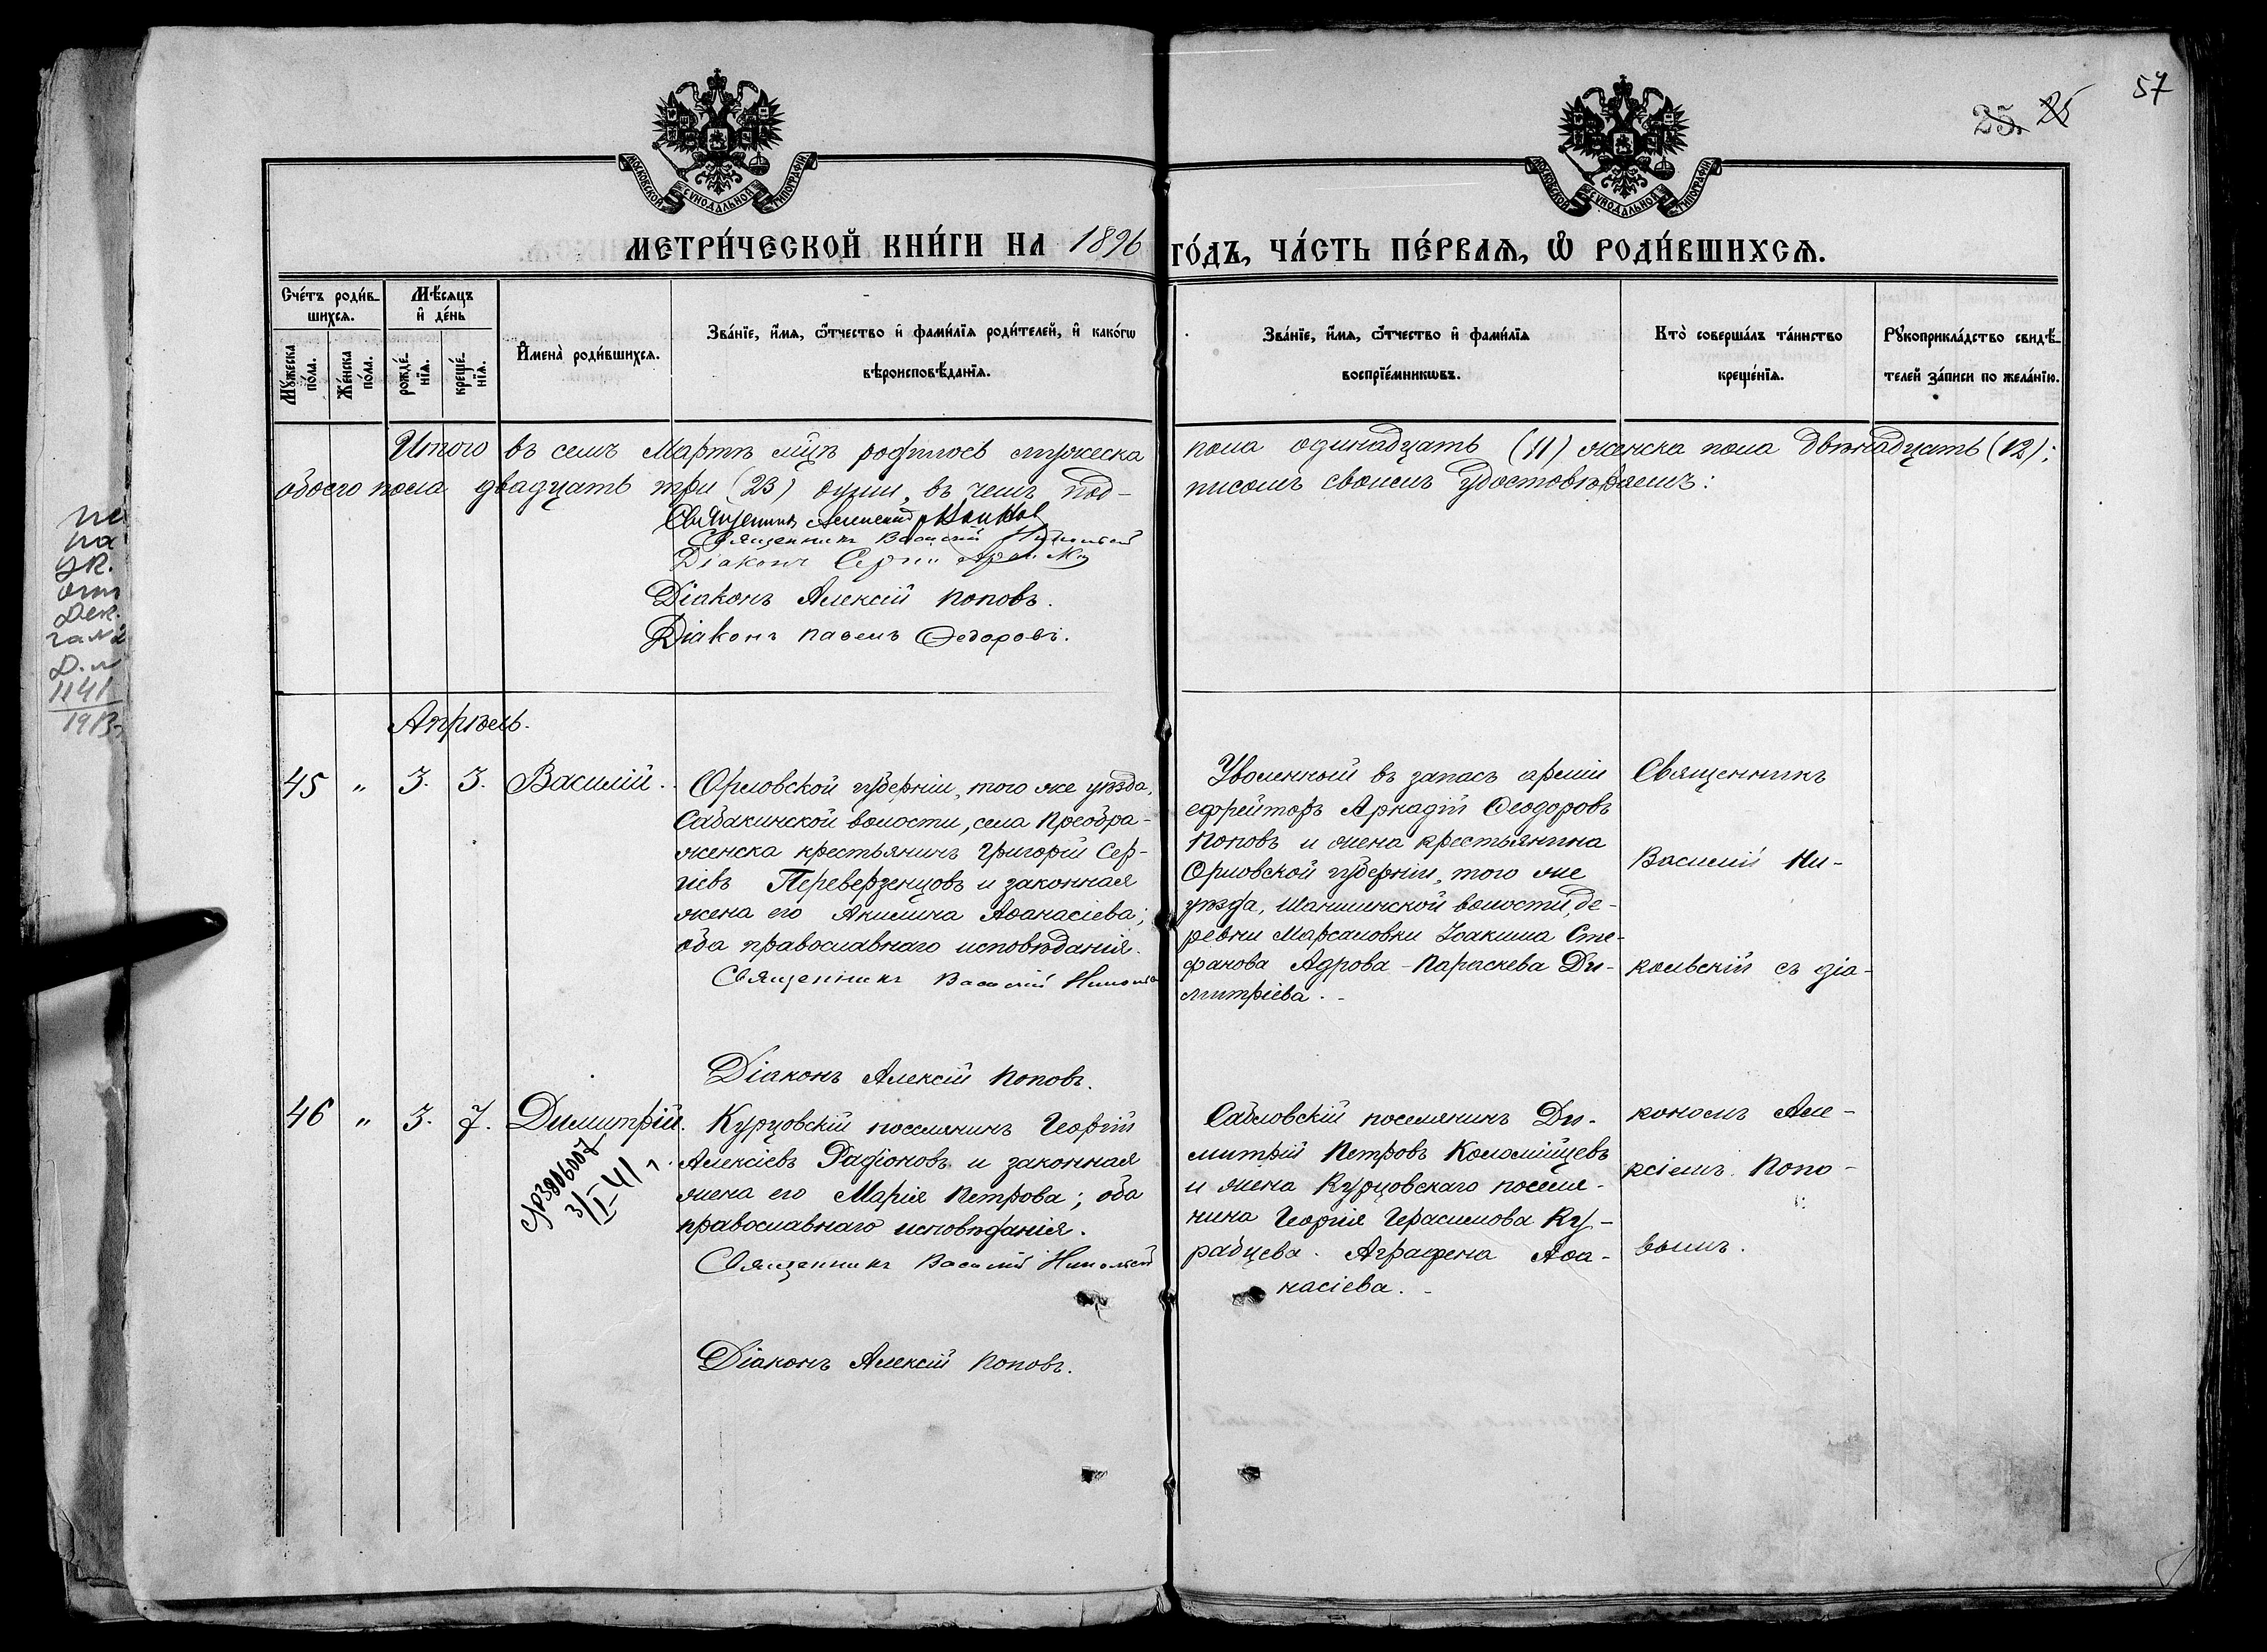 57
25. 25
МОСКОВСКОЙ СѴНОДАЛЬНОЙ ТИПОГРАФІИ
МОСКОВСКОЙ СѴНОДАЛЬНОЙ ТИПОГРАФІИ
МЕТРИ́ЧЕСКОЙ КНИ́ГИ НА 1896 ГО́ДЪ, ЧА́СТЬ ПЕ́РВАѦ, Ѽ РОДИ́ВШИХСѦ.
Сче́тъ роди́вшихсѧ.
Мꙋ́жеска по́ла.
Же́нска по́ла.
Мѣ́сѧцъ и҆ де́нь
рожде́нїѧ.
креще́нїѧ.
И҆мена̀ роди́вшихсѧ.
Зва́нїе, и҆́мѧ, ѻ҆́тчество и҆ фами́лїѧ роди́телей, и҆ како́гѡ
вѣроисповѣ́данїѧ.
Зва́нїе, и҆́мѧ, ѻ҆́тчество и҆ фами́лїѧ
воспрїе́мникѡвъ.
Кто̀ соверша́лъ та́инство
креще́нїѧ.
Рꙋкоприкла́дство свидѣ́-
телей за́писи по жела́нїю.
Итого въ семъ Мартѣ мцѣ родилось мужеска пола одинадцать (11) женска пола двѣнадцать (12);
обоего пола двадцать три (23) души, въ чемъ под-
писомъ своимъ удостовѣряемъ:
Священникъ
Священникъ Василій Никольскій
Діаконъ Сергій
Діаконъ Алексій Поповъ.
Діаконъ Павелъ Ѳедоровъ.
Апрѣль.
45 " 3. 3. Василій.
Орловской губерніи, того же уѣзда,
Сабакинской волости, села Преобра-
женска крестьянинъ Григорій Сер-
гіевъ Переверзенцовъ и законная
жена его Акилина Аѳанасіева;
оба православнаго исповѣданія.
Священникъ Василій Никольскій
Діаконъ Алексій Поповъ.
Уволенный въ запасъ арміи
ефрейторъ Аркадій Ѳеодоровъ
Поповъ и жена крестьянина
Орловской губерніи, того же
уѣзда, Шаншинской волости, де-
ревни Марсаловки Іоакима Сте-
фанова Адрова - Параскева Ди-
митріева. -
Священникъ
Василій Ни-
кольскій съ діа-
кономъ Але-
ксіемъ Попо-
вымъ.
46 " 3. 7. Димитрій.
Курцовскій поселянинъ Георгій
Алексіевъ Радіоновъ и законная
жена его Марія Петрова; оба
православнаго исповѣданія.
Священникъ Василій Никольскій
Діаконъ Алексій Поповъ.
Сабловскій поселянинъ Ди-
митрій Петровъ Коломійцевъ
и жена Курцовскаго поселя-
нина Георгія Герасимова Ку-
рабцева. Аграфена Аѳа-
насіева. -
3/I-41 г.
1141
1913